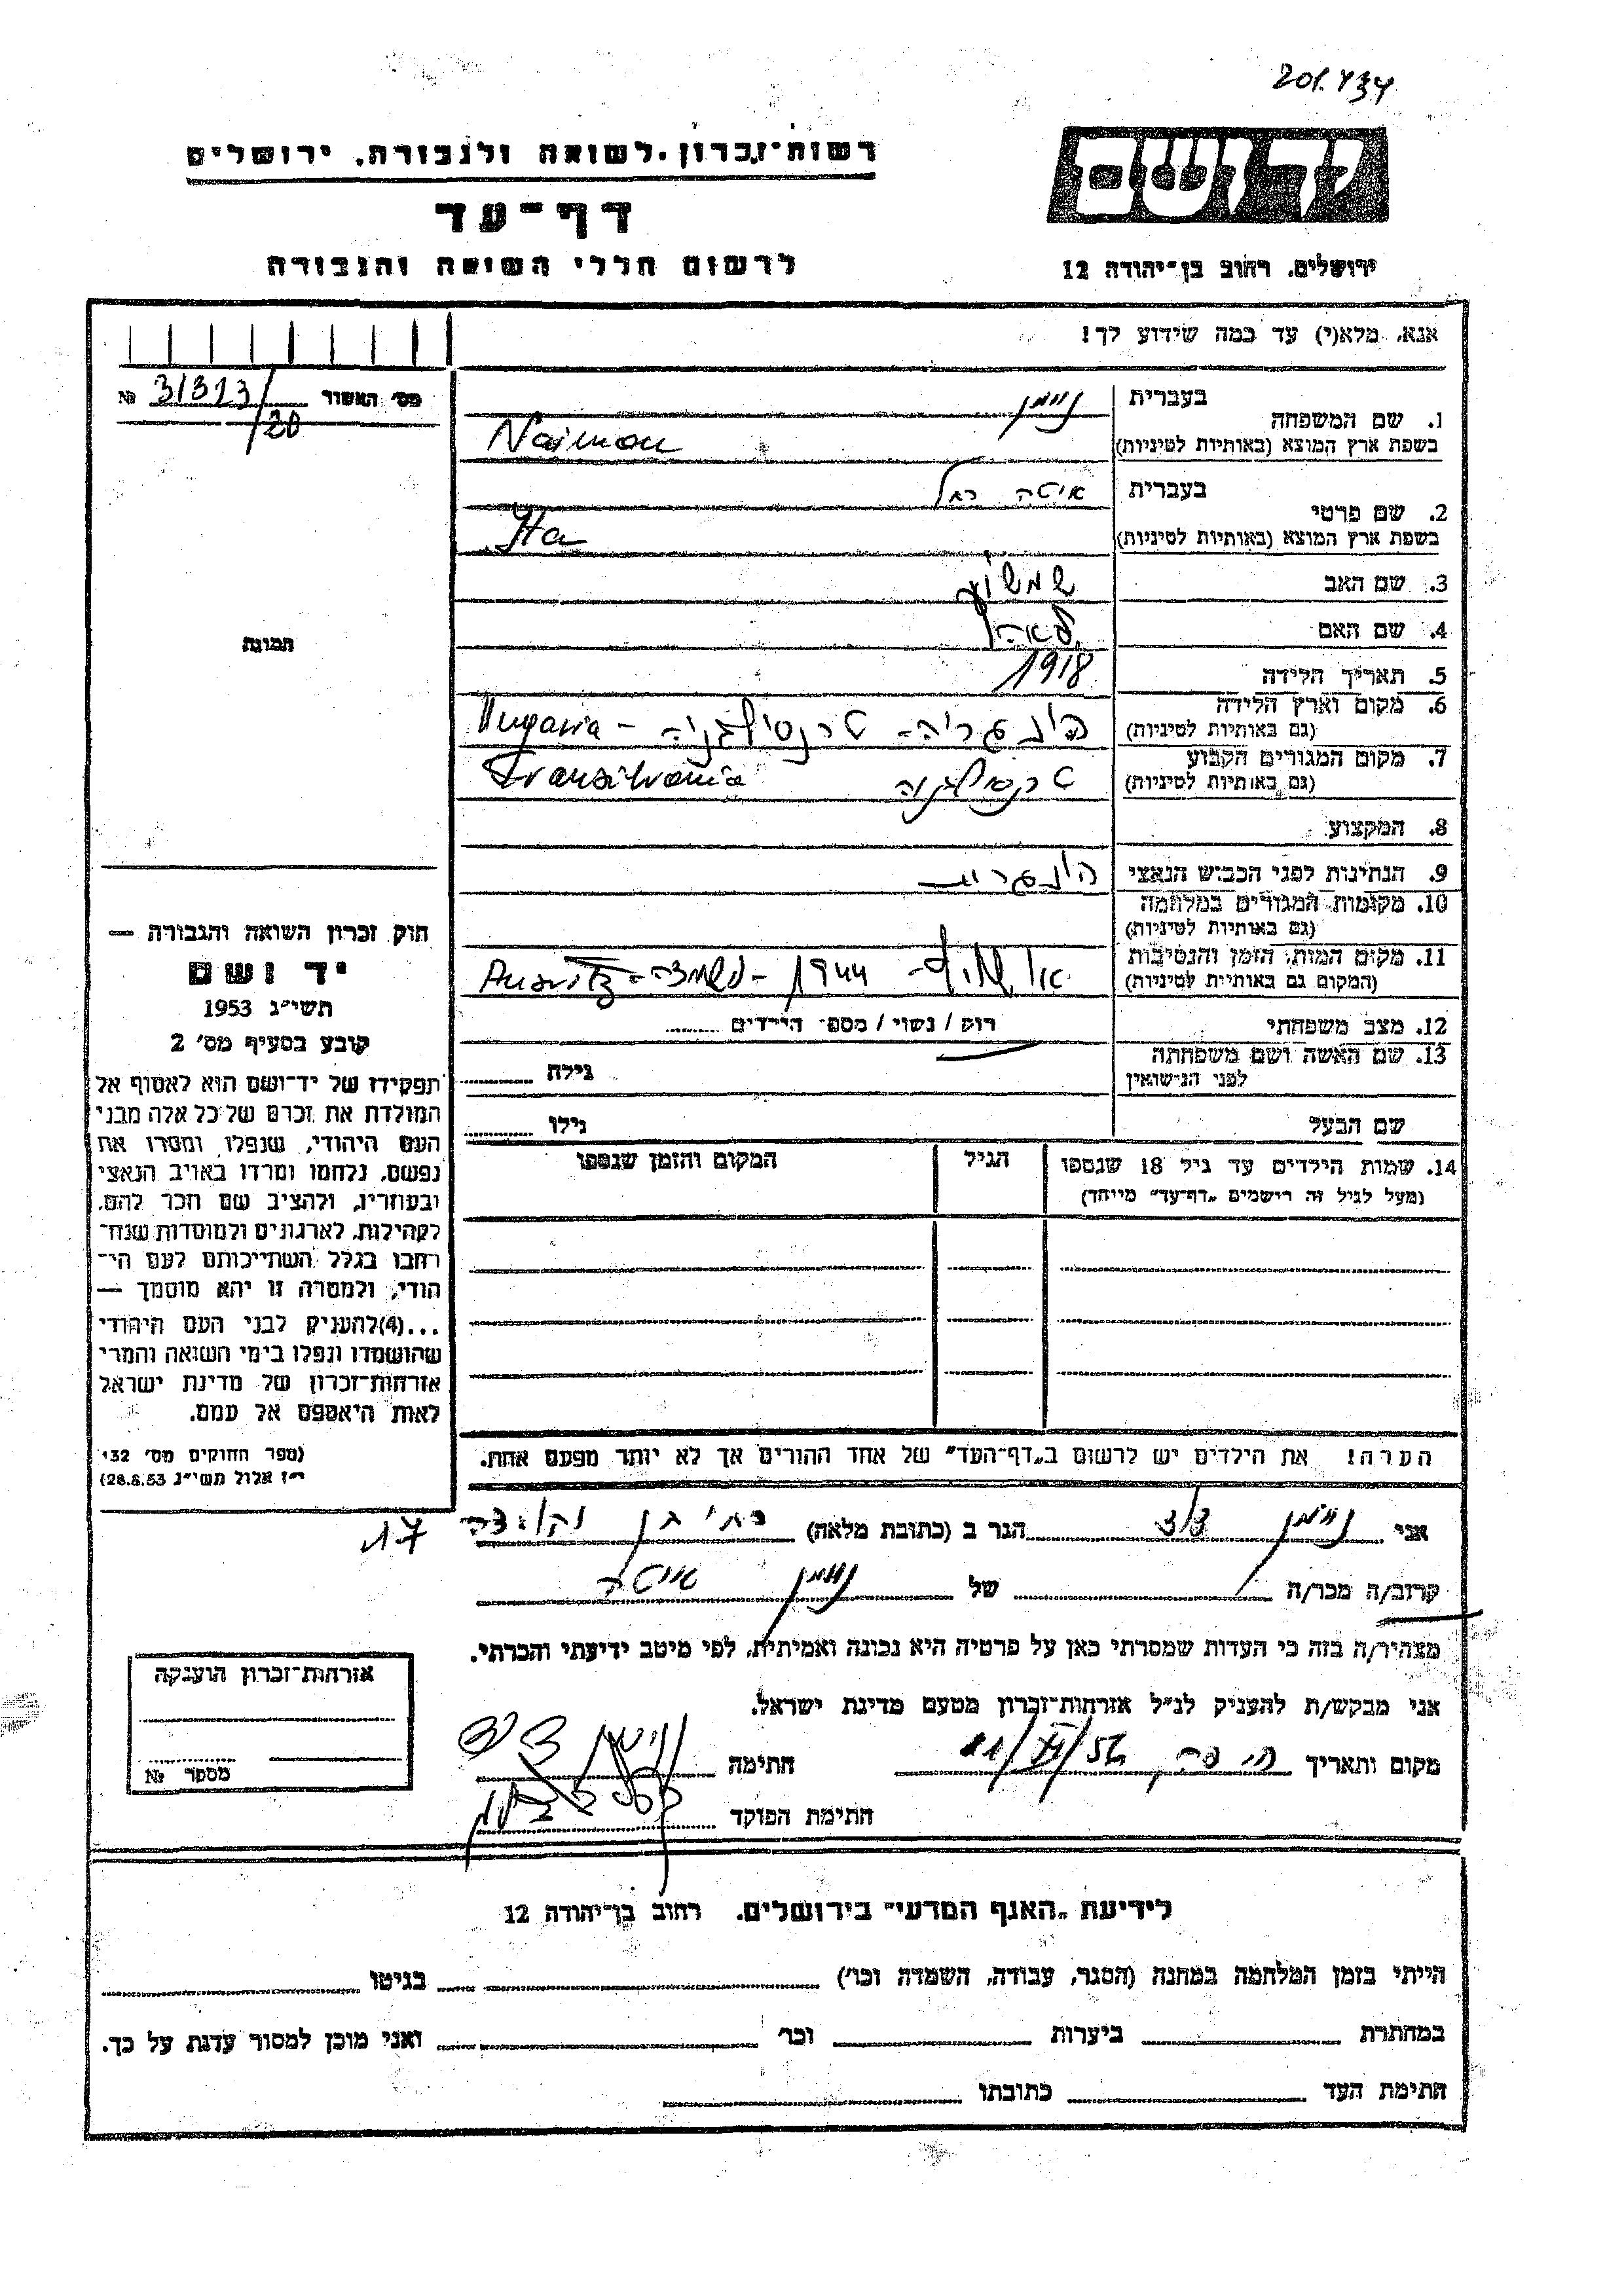 201.434
רשות־זכרון לשואה ולגבורה, ירושלים
דף־עד
לרשום חללי השואה והגבורה
יד ושם
ירושלים, רחוב בן־יהודה 12
אנא, מלא(י) עד כמה שידוע לך!
מס' האשור 31313/20 №
1. שם המשפחה
בעברית נוימן
בשפת ארץ המוצא (באותיות לטיניות) Naiman
2. שם פרטי
בעברית איטה
בשפת ארץ המוצא (באותיות לטיניות) Ita
3. שם האב
4. שם האם
5. תאריך הלידה 1918
6. מקום וארץ הלידה (גם באותיות לטיניות) הונגריה - טרנסילבניה - Hungaria
7. מקום המגורים הקבוע (גם באותיות לטיניות) טרנסילבניה Transilvania
8. המקצוע
9. הנתינות לפני הכבוש הנאצי הונגרית
10. מקומות המגורים במלחמה (גם באותיות לטיניות)
11. מקום המות, הזמן והנסיבות (המקום גם באותיות לטיניות) אושויץ - 1944 - נשמדה - Auschwitz
12. מצב משפחתי רווק / נשוי / מספר הילדים
13. שם האשה ושם משפחתה לפני הנישואין
גילה
שם הבעל
גילו
14. שמות הילדים עד גיל 18 שנספו
(מעל לגיל זה רישמים „דף־עד” מיוחד)
הגיל
המקום והזמן שנספו
הערה! את הילדים יש לרשום ב„דף־העד” של אחד ההורים אך לא יותר מפעם אחת.
תמונה
חוק זכרון השואה והגבורה —
יד ושם
תשי״ג 1953
קובע בסעיף מס' 2
תפקידו של יד־ושם הוא לאסוף אל
המולדת את זכרם של כל אלה מבני
העם היהודי, שנפלו ומסרו את
נפשם, נלחמו ומרדו באויב הנאצי
ובעוזריו, ולהציב שם וזכר להם,
לקהילות, לארגונים ולמוסדות שנח־
רבו בגלל השתייכותם לעם הי־
הודי, ולמטרה זו יהא מוסמך —
...(4) להעניק לבני העם היהודי
שהושמדו ונפלו בימי השואה והמרי
אזרחות־זכרון של מדינת ישראל
לאות היאספם אל עמם.
(ספר החוקים מס' 132
י״ז אלול תשי״ג 28.8.53)
אני נוימן הגר ב (כתובת מלאה) 17
קרוב/ה מכר/ה של נוימן איטה
מצהיר/ה בזה כי העדות שמסרתי כאן על פרטיה היא נכונה ואמיתית, לפי מיטב ידיעתי והכרתי.
אני מבקש/ת להעניק לנ״ל אזרחות־זכרון מטעם מדינת ישראל.
מקום ותאריך חתימה
חתימת הפוקד
אזרחות־זכרון הוענקה
מספר №
לידיעת „האגף המדעי” בירושלים, רחוב בן־יהודה 12
הייתי בזמן המלחמה במחנה (הסגר, עבודה, השמדה וכו') בגיטו
במחתרת ביערות וכו' ואני מוכן למסור עדות על כך.
חתימת העד כתובתו